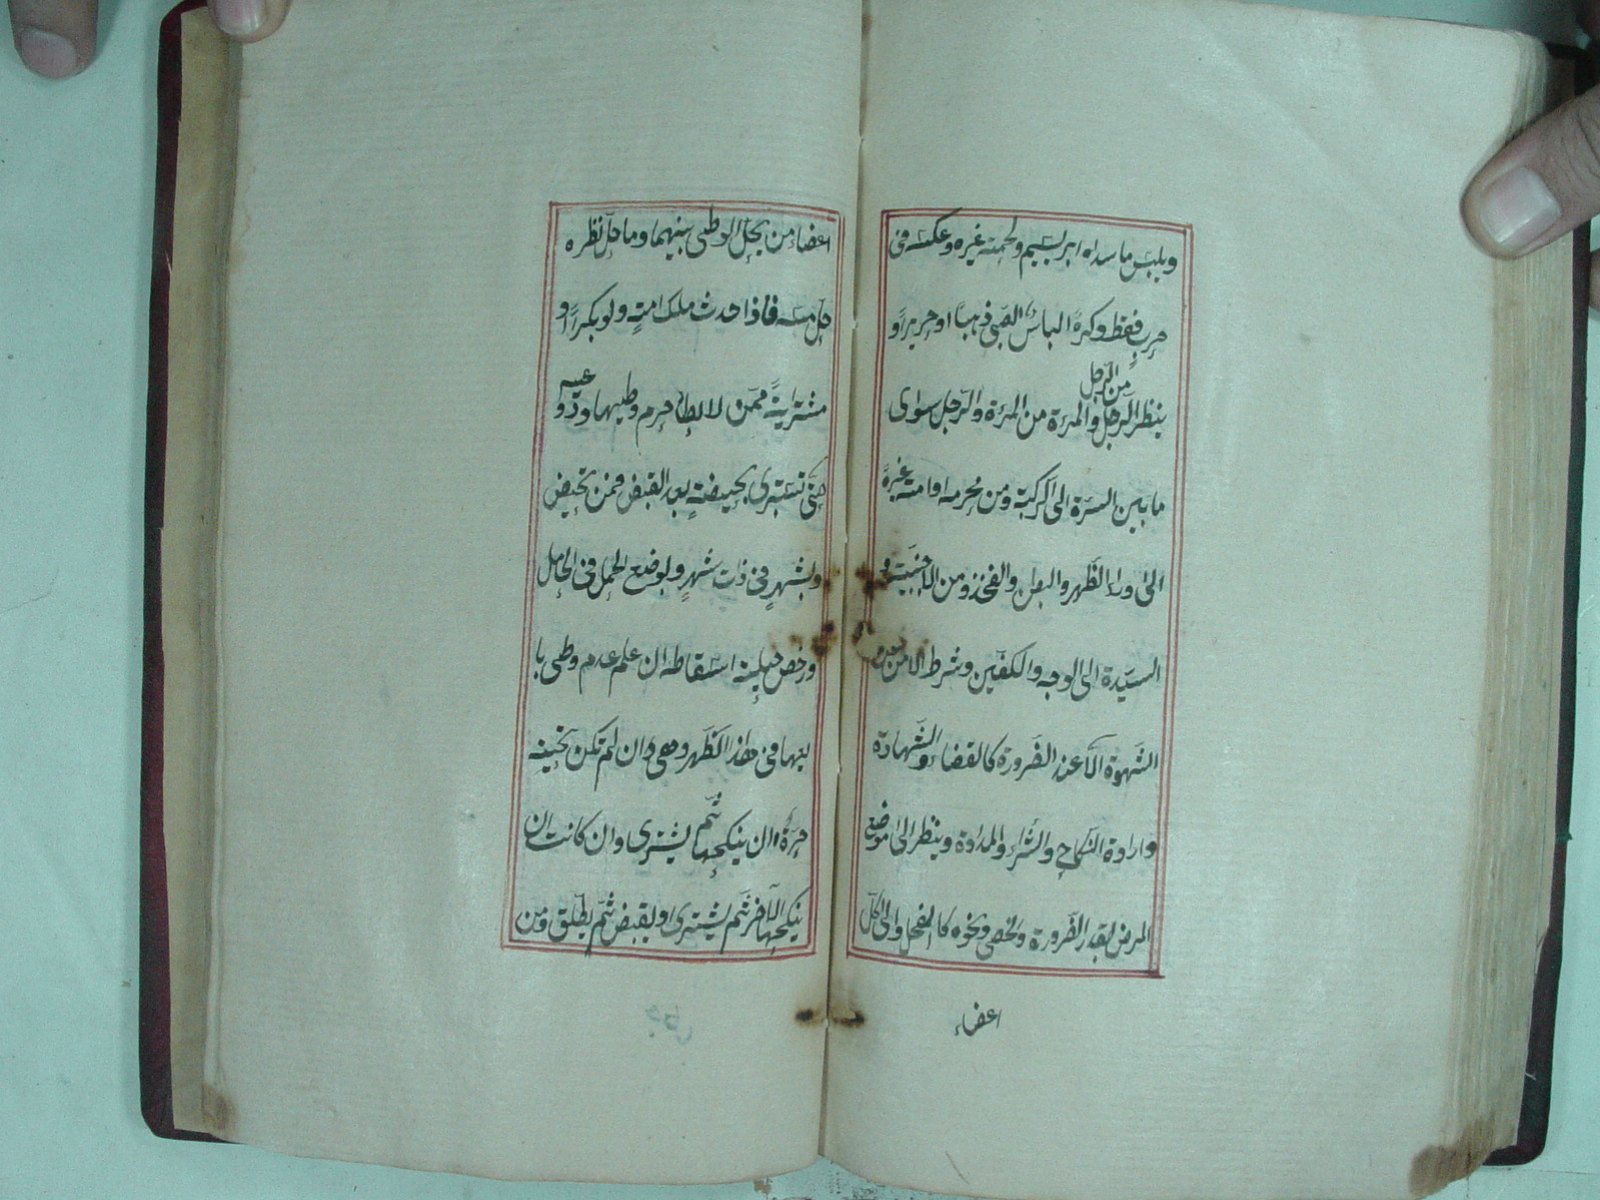 ويلبس ما سداه ابريسم ولحمته غيره وعكسه فى
حرب فقط وكره الباس الصبى ذهبا او حريرا و
ينظر الرجل من الرجل والمرءة من المرءة والرجل سوى
ما بين السرة الى الركبة ومن محرمه او امة غيره
الى وراء الظهر والبطن والفخذ ومن الاجنبية و
السيدة الى الوجه والكفين وشرط الامن
الشهوة الا عند الضرورة كالقضاء والشهادة
وارادة النكاح والشراء والمداوة وينظر الى موضع
المرض بقدر الضرورة والخصى ونحوه كالفحل والى كل
اعضاء
اعضاء من يحل الوطى بينهما وما حل نظره
حل مسه فاذا حدث ملك امة ولو بكرا او
مشترية ممن لا يطأ حرم وطيها ودواعيه
حتى تستبرى بحيضة بعد القبض فمن تحيض
وبشهر فى ذات شهر وبوضع الحمل فى الحامل
ورخص حيلة اسقاطه ان علم عدم وطى با
يعها فى هذا الطهر وهى ان لم تكن تحته
حرة ان ينكحها ثم يشترى وان كانت ان
ينكحها الآخر ثم يشترى او يقبض ثم يطلق ومن